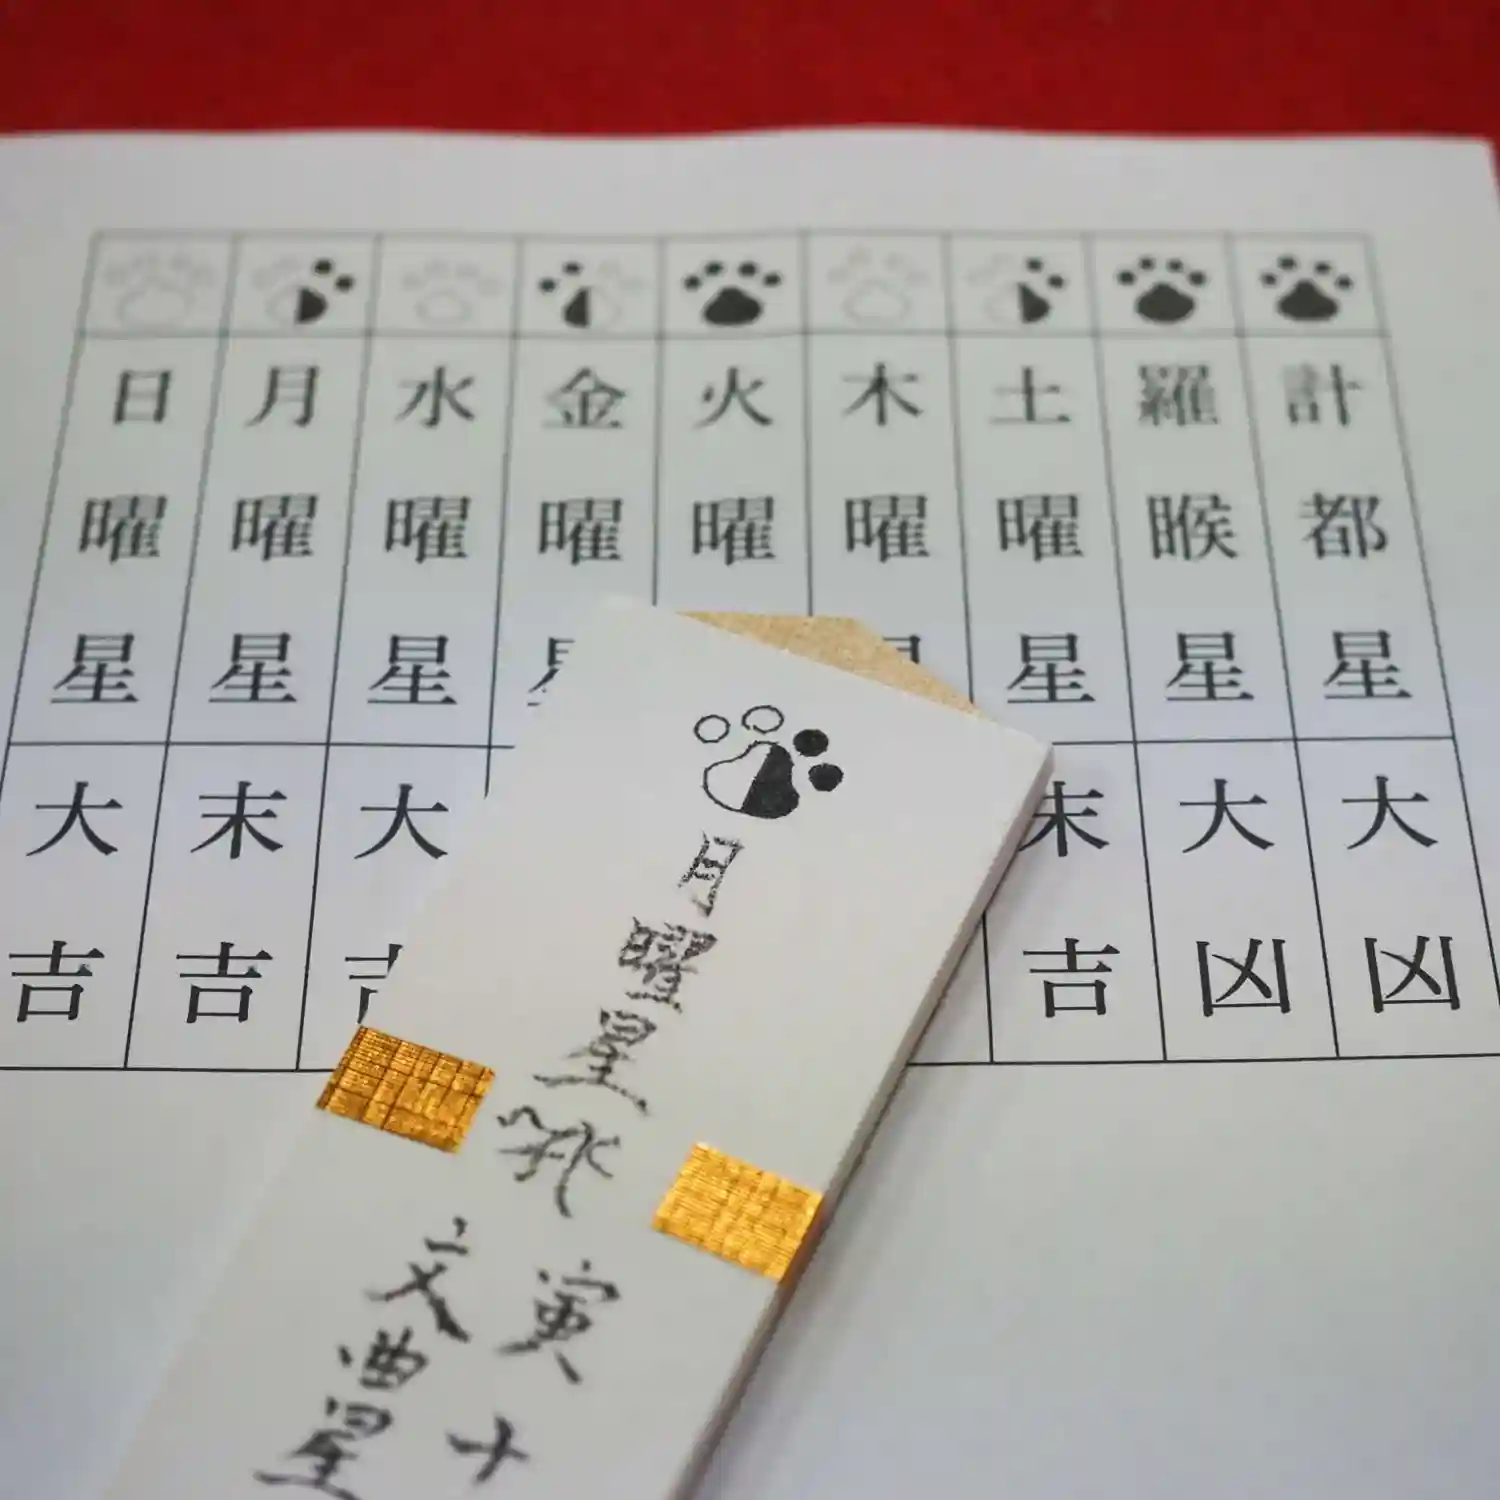 日曜星 大吉
月曜星 末吉
水曜星 大
金曜
火曜
木曜
土曜星 末吉
羅睺星 大凶
計都星 大凶
月曜星
文曲星
寅